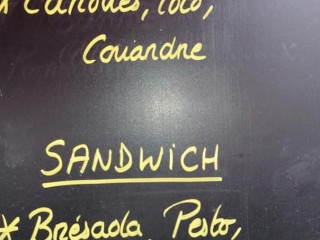 Carottes, coco,
Couandre
SANDWICH
* Brésaola, Pesto,